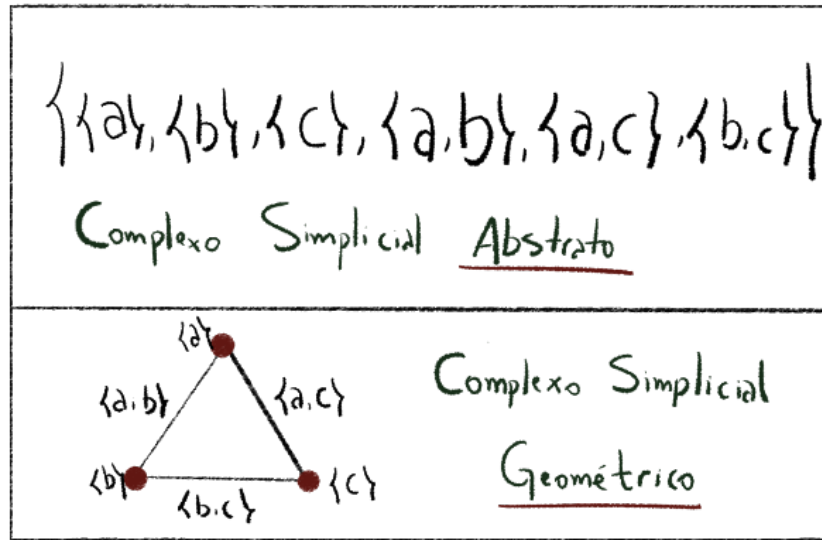 {{a}, {b}, {c}, {a,b}, {a,c}, {b,c}}
Complexo Simplicial Abstrato
{a}
{a,b}
{a,c}
{b}
{c}
{b,c}
Complexo Simplicial
Geométrico